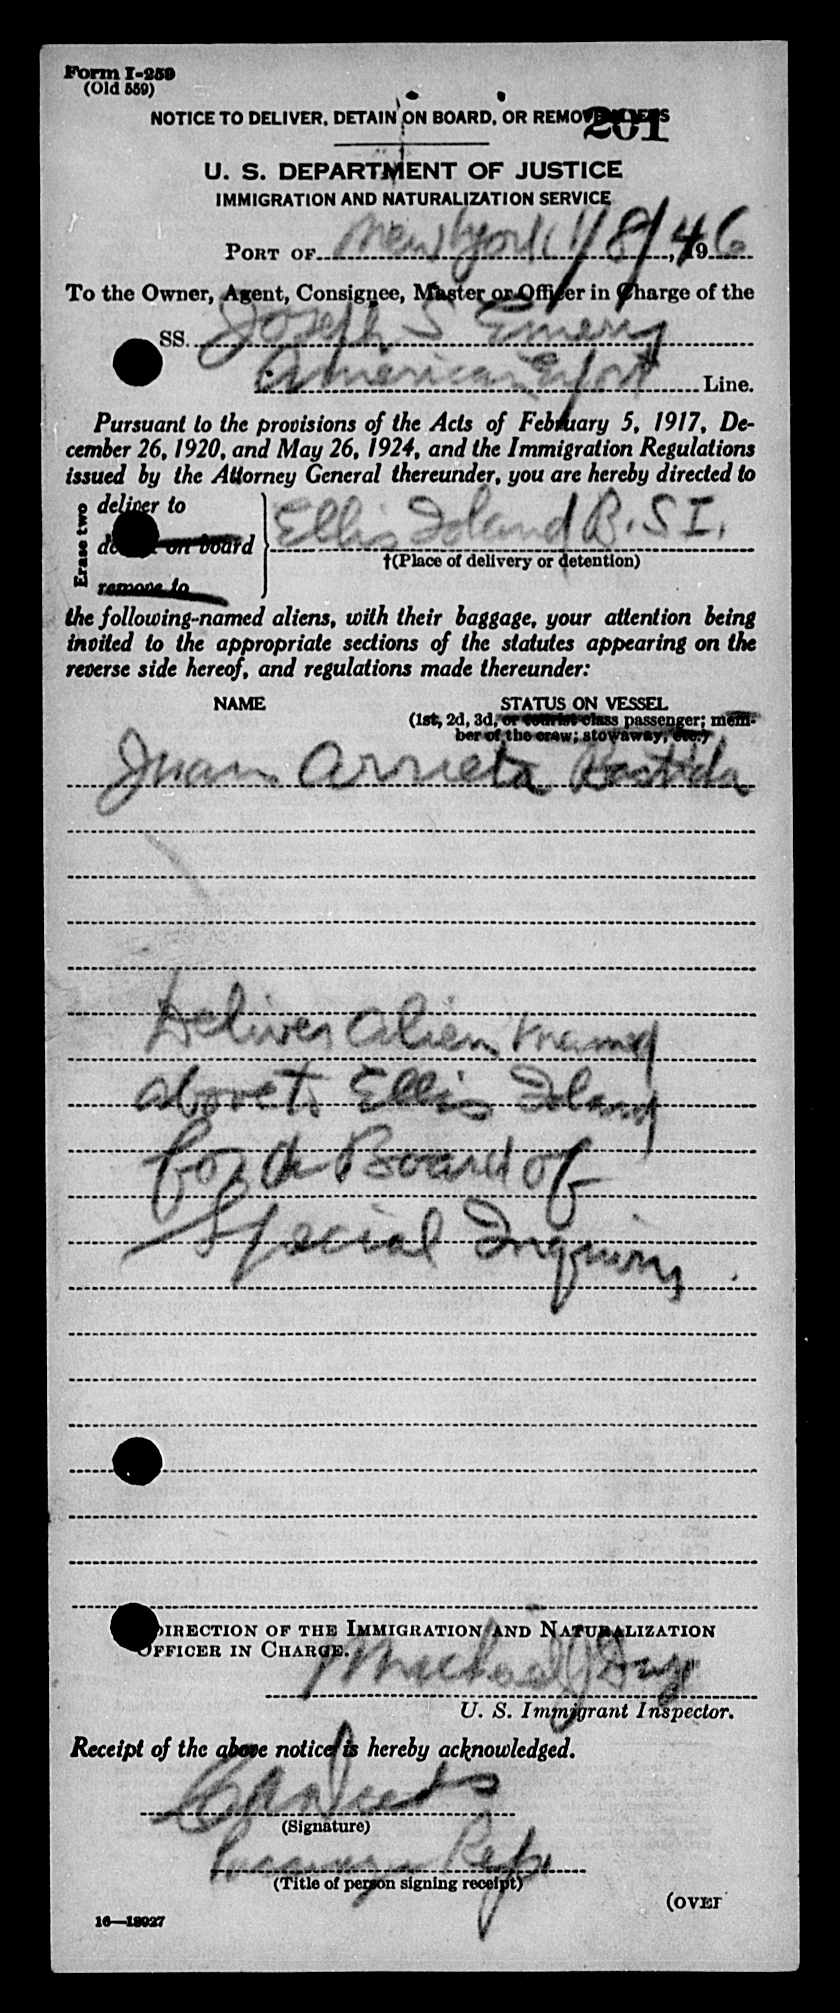 Form I-259
(Old 559)
NOTICE TO DELIVER, DETAIN ON BOARD, OR REMOVE ALIENS
201
U. S. DEPARTMENT OF JUSTICE
IMMIGRATION AND NATURALIZATION SERVICE
PORT OF New York 1/8/46, 1946
To the Owner, Agent, Consignee, Master or Officer in Charge of the
SS. Joseph S Emery
American Export Line.
Pursuant to the provisions of the Acts of February 5, 1917, De-
cember 26, 1920, and May 26, 1924, and the Immigration Regulations
issued by the Attorney General thereunder, you are hereby directed to
Erase two
deliver to
on board
remove to
Ellis Island B.S.I.
†(Place of delivery or detention)
the following-named aliens, with their baggage, your attention being
invited to the appropriate sections of the statutes appearing on the
reverse side hereof, and regulations made thereunder:
NAME STATUS ON VESSEL
(1st, 2d, 3d, or tourist class passenger; mem-
ber of the crew; stowaway, etc.)
Juan Arrieta Bastida
Deliver alien named
above to Ellis Island
for a Board of
Special Inquiry.
DIRECTION OF THE IMMIGRATION AND NATURALIZATION
OFFICER IN CHARGE.
Michael J
U. S. Immigrant Inspector.
Receipt of the above notice is hereby acknowledged.
(Signature)
(Title of person signing receipt)
(OVER
16—18027